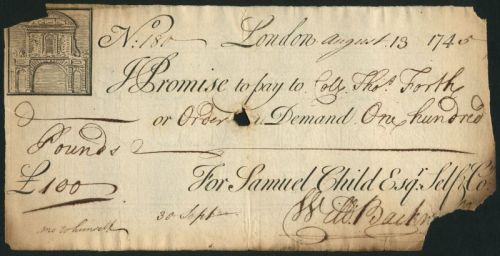 No. 180 London August 13 1745
I Promise to pay to Coll. Thos. Forth
or Order on Demand One hundred
Pounds
£100 For Samuel Child Esqr. Self & Co
30 Sept Willm.